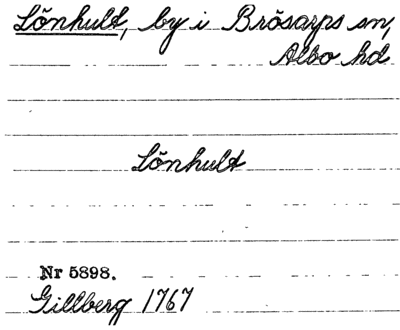 Lönhult, by i Brösarps sn,
Albo hd
Lönhult
Nr 5898.
Gillberg 1767